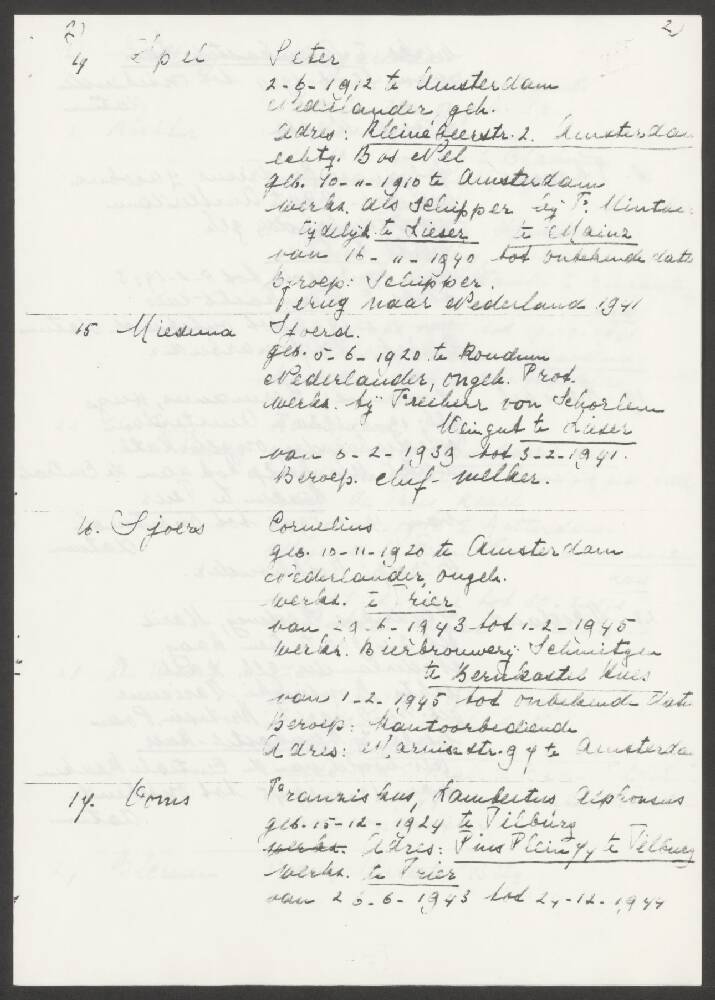 2) 2)
14 Apel Peter
2-6-1912 te Amsterdam
Nederlander, geh.
Adres: Kleine Geerstr. 2. Amsterdam
echtg. Bos Nel
geb. 10-11-1910 te Amsterdam
werkz. als Schipper bij F.
tijdelijk te Lieser te Mainz
van 16-11-1940 tot onbekende datu
Beroep: Schipper.
Terug naar Nederland 1941
15 Miedema Sjoerd.
geb. 5-6-1920 te Koudum
Nederlander, ongeh. Prot.
werkz. bij Freiherr von Schorlem
Weingut te Lieser
van 6-2-1939 tot 3-2-1941.
Beroep. chef-melker.
16. Sjoers Cornelius
geb. 10-11-1920 te Amsterdam
Nederlander, ongeh.
werkz. te Trier
van 23-6-1943 tot 1-2-1945
werkz. Bierbrouwerij Schmitgen
te Bernkastel Kues
van 1-2-1945 tot onbekende Dat
Beroep: Kantoorbediende
Adres: Marnixstr. 94 te Amsterda
17. Ooms Franziskus, Lambertus Alphonsus
geb. 15-12-1924 te Tilburg
werkz. Adres: Pius Plein 74 te Tilburg
werkz. te Trier
van 26-6-1943 tot 24-12-1944